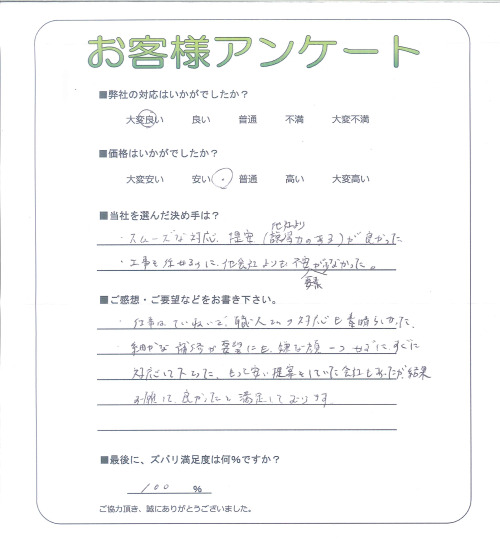 お客様アンケート
■弊社の対応はいかがでしたか？
大変良い 良い 普通 不満 大変不満
■価格はいかがでしたか？
大変安い 安い ・ 普通 高い 大変高い
■当社を選んだ決め手は？
他社より
・スムーズな対応、提案（説得力のある）が良かった
・工事を任せるのに、他会社よりも不安が少なかった。
■ご感想・ご要望などをお書き下さい。
・仕事はていねいで、職人さんの対応も素晴らしかった。
・細かな補修や要望にも、嫌な顔一つせずに、すぐに
対応して下さった、もっと安い提案をしていた会社もあったが結果
お願いして、良かったと満足しております。
■最後に、ズバリ満足度は何%ですか？
100 %
ご協力頂き、誠にありがとうございました。